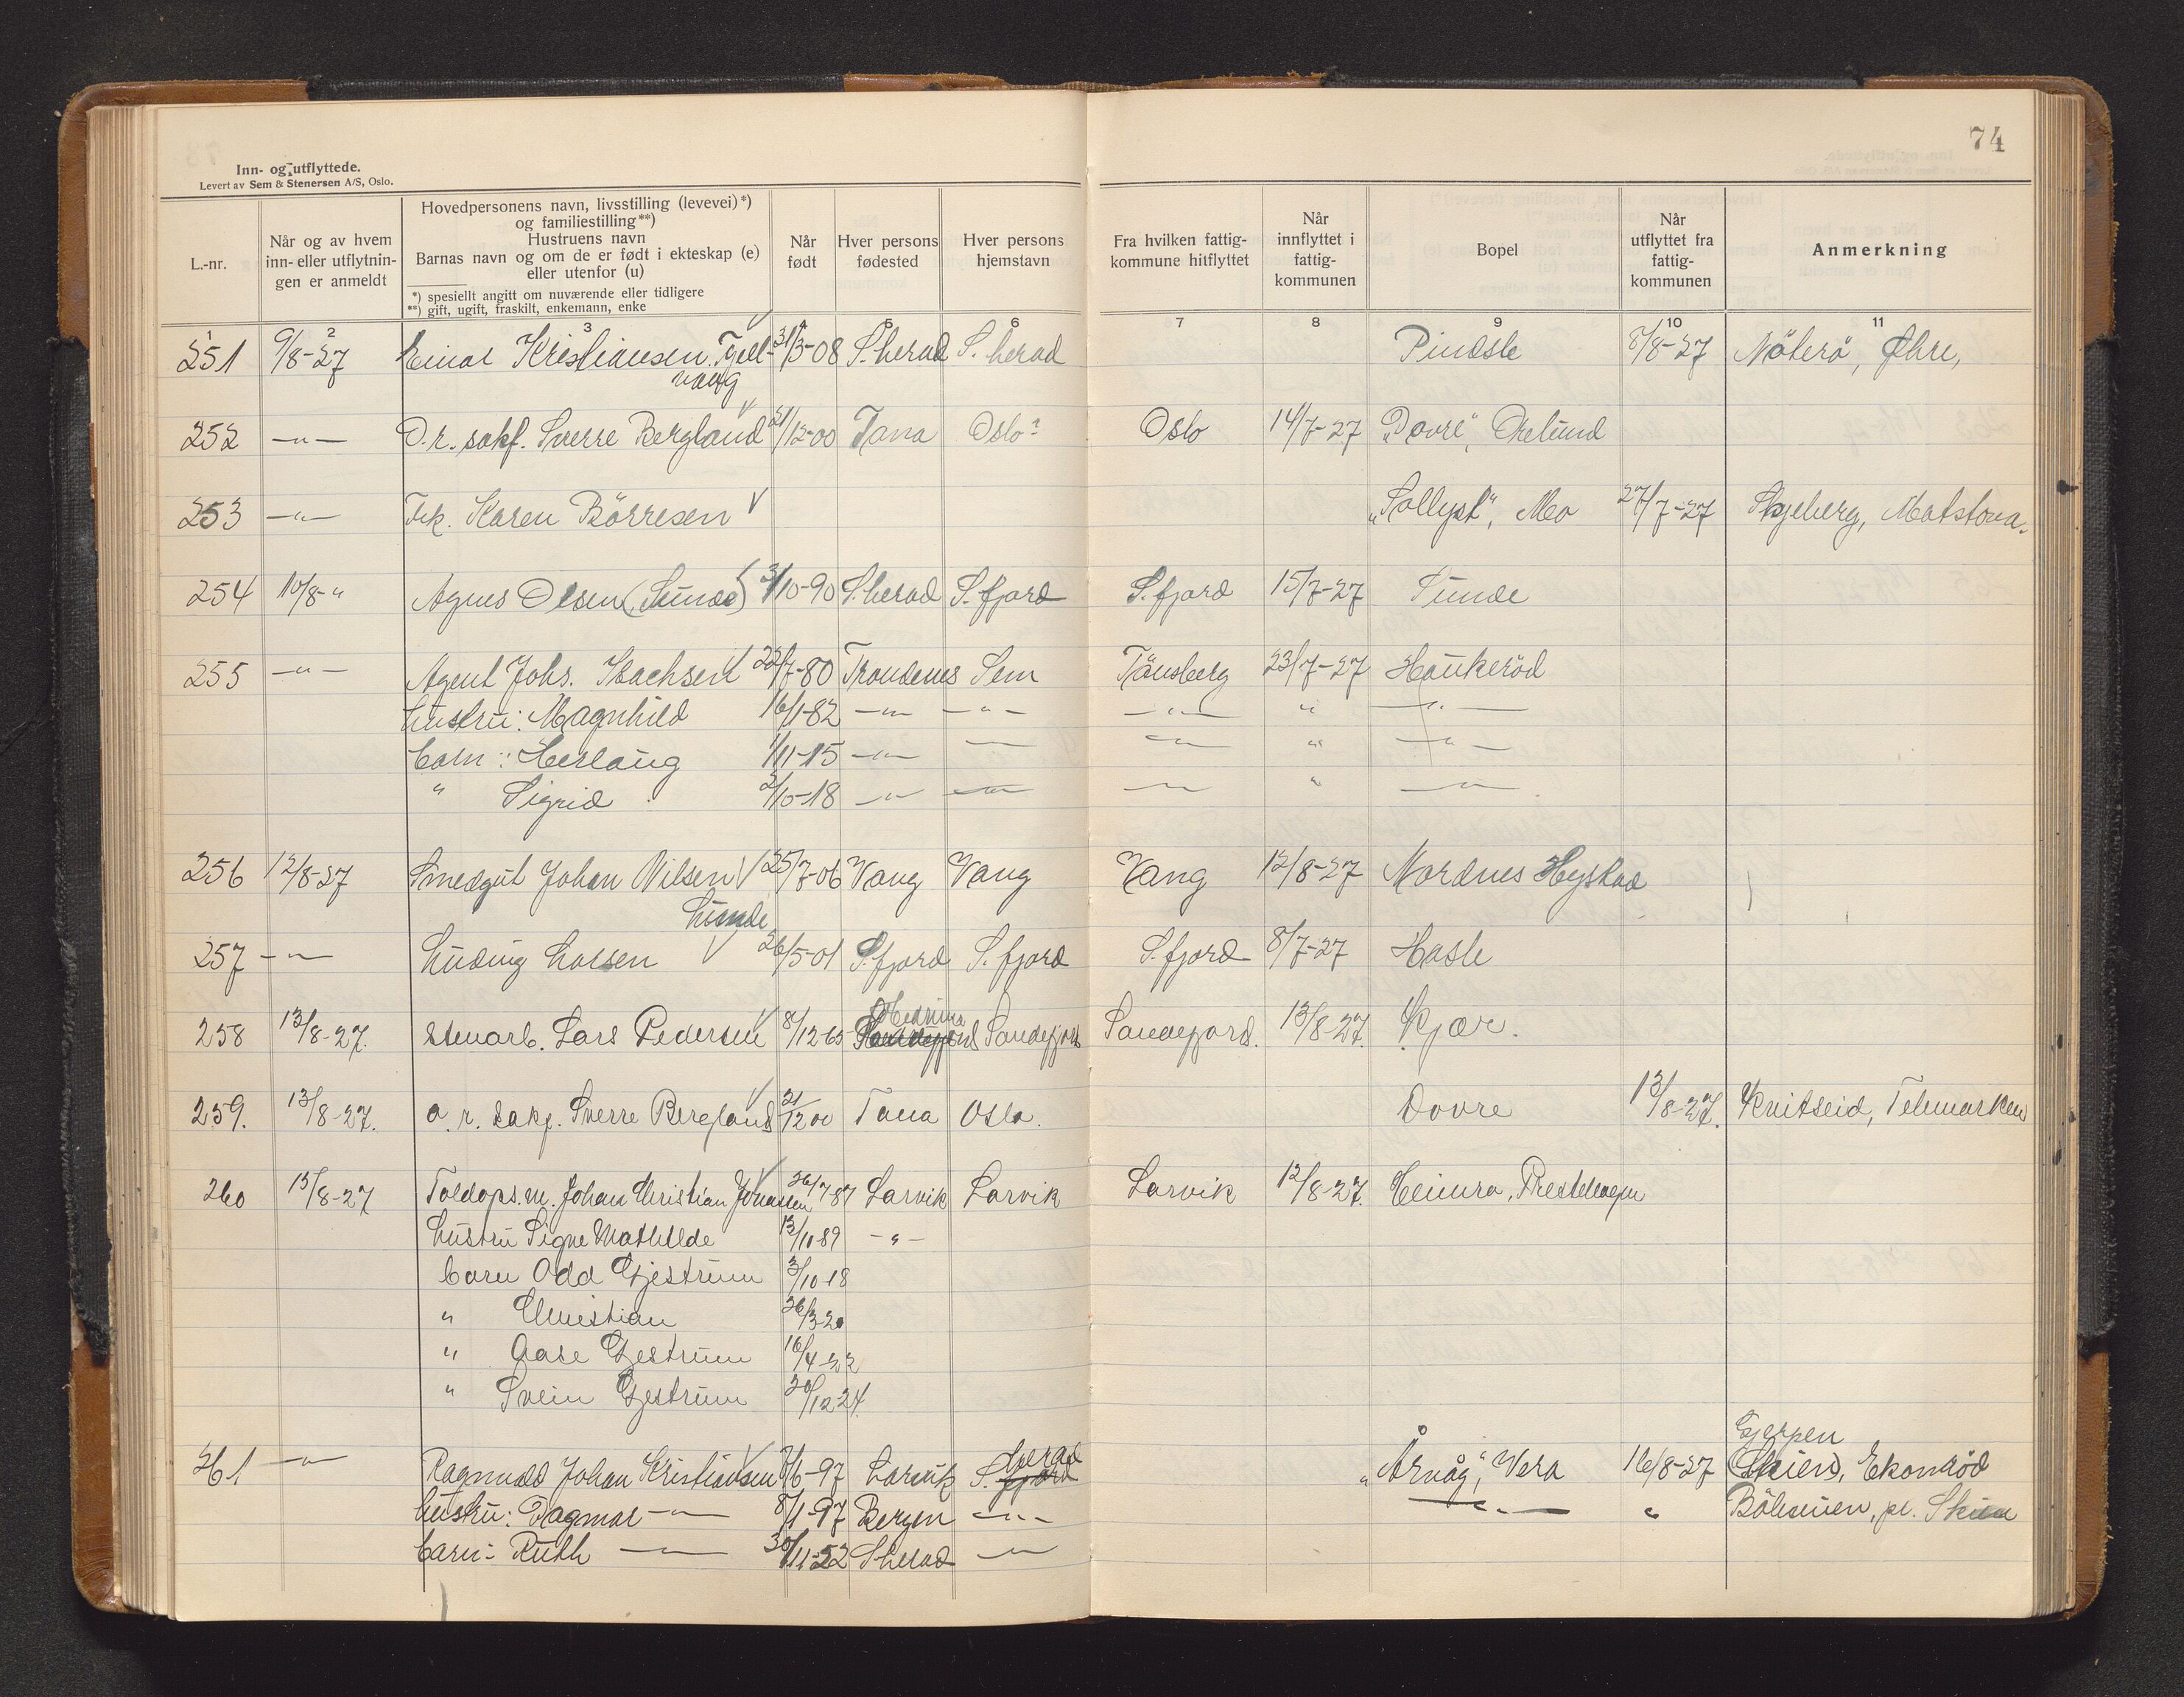 74
Inn- og utflyttede.
Levert av Sem & Stenersen A/S, Oslo.
L.-nr.
Når og av hvem inn- eller utflytnin- gen er anmeldt
Hovedpersonens navn, livsstilling (levevei) *)
og familiestilling **)
Hustruens navn
Barnas navn og om de er født i ekteskap (e)
eller utenfor (u)
*) spesielt angitt om nuværende eller tidligere
**) gift, ugift, fraskilt, enkemann, enke
Når født
Hver persons fødested
Hver persons hjemstavn
Fra hvilken fattig- kommune hitflyttet
Når innflyttet i fattig- kommunen
Bopel
Når utflyttet fra fattig- kommunen
Anmerkning
1 2 3 4 5 6 7 8 9 10 11
251 9/8-27 Einar Kristiansen Tjell- 31/3-08 S.herad S.herad Pindsle 8/8-27 Nøterø,
vang
252 -"- O.r. sakf. Sverre Bergland 21/12-00 Tana Oslo? Oslo 14/7-27 "Dovre", Orelund
253 -"- Frk. Karen Börresen "Sollyst", Mo 27/7-27 Skjeberg, Matstova.
254 10/8-" Agnes Olsen (Sunde) 3/10-90 S.herad S.fjord S.fjord 15/7-27 Sunde
255 -"- Agent Johs. Isachsen 22/7-80 Trondenes Sem Tönsberg 23/7-27 Haukeröd
hustru: Magnhild 16/1-82 -"- -"- -"- " -"-
barn: Herlaug 1/11-15 -"- -"- -"- " -"-
" Sigrid 2/10-18 -"- -"- -"- " -"-
256 12/8-27 Smedgut Johan Nilsen 25/7-06 Vang Vang Vang 12/8-27 Nordnes Hystad
Lunde
257 -"- Ludvig Larsen 26/5-01 S.fjord S.fjord S.fjord 8/7-27 Hasle
Hedrum
258 13/8-27. Stenarb. Lars Pedersen 8/12-65 Sandefjord Sandefjord Sandefjord. 13/8-27. Kjær.
259. 13/8-27. O.r. sakf. Sverre Bergland 21/12 00 Tana Oslo. Dovre 13/8-27. Kvitseid, Telemarken
260 15/8-27 Toldops.m. Johan Christian Jonassen 26/7 87 Larvik Larvik Larvik 12/8-27. Heimra, Prestehagen
hustru Signe Mathilde 13/11 89 -"-
barn Odd Gjestrum 3/10-18
" Christian 26/3-20
" Aase Gjestrum 16/4-22
" Svein Gjestrum 20/12-24.
Gjerpen
261 -"- Ragnvald Johan Kristiansen 7/6-97 Larvik S.fjord herad "Årvåg", Vera 16/8-27 (Skien), Ekornröd
hustru: Dagmar -"- 8/1-97 Bergen -"- -"- " Bölevien, pr. Skien
barn: Ruth -"- 30/11-22 S.herad -"-